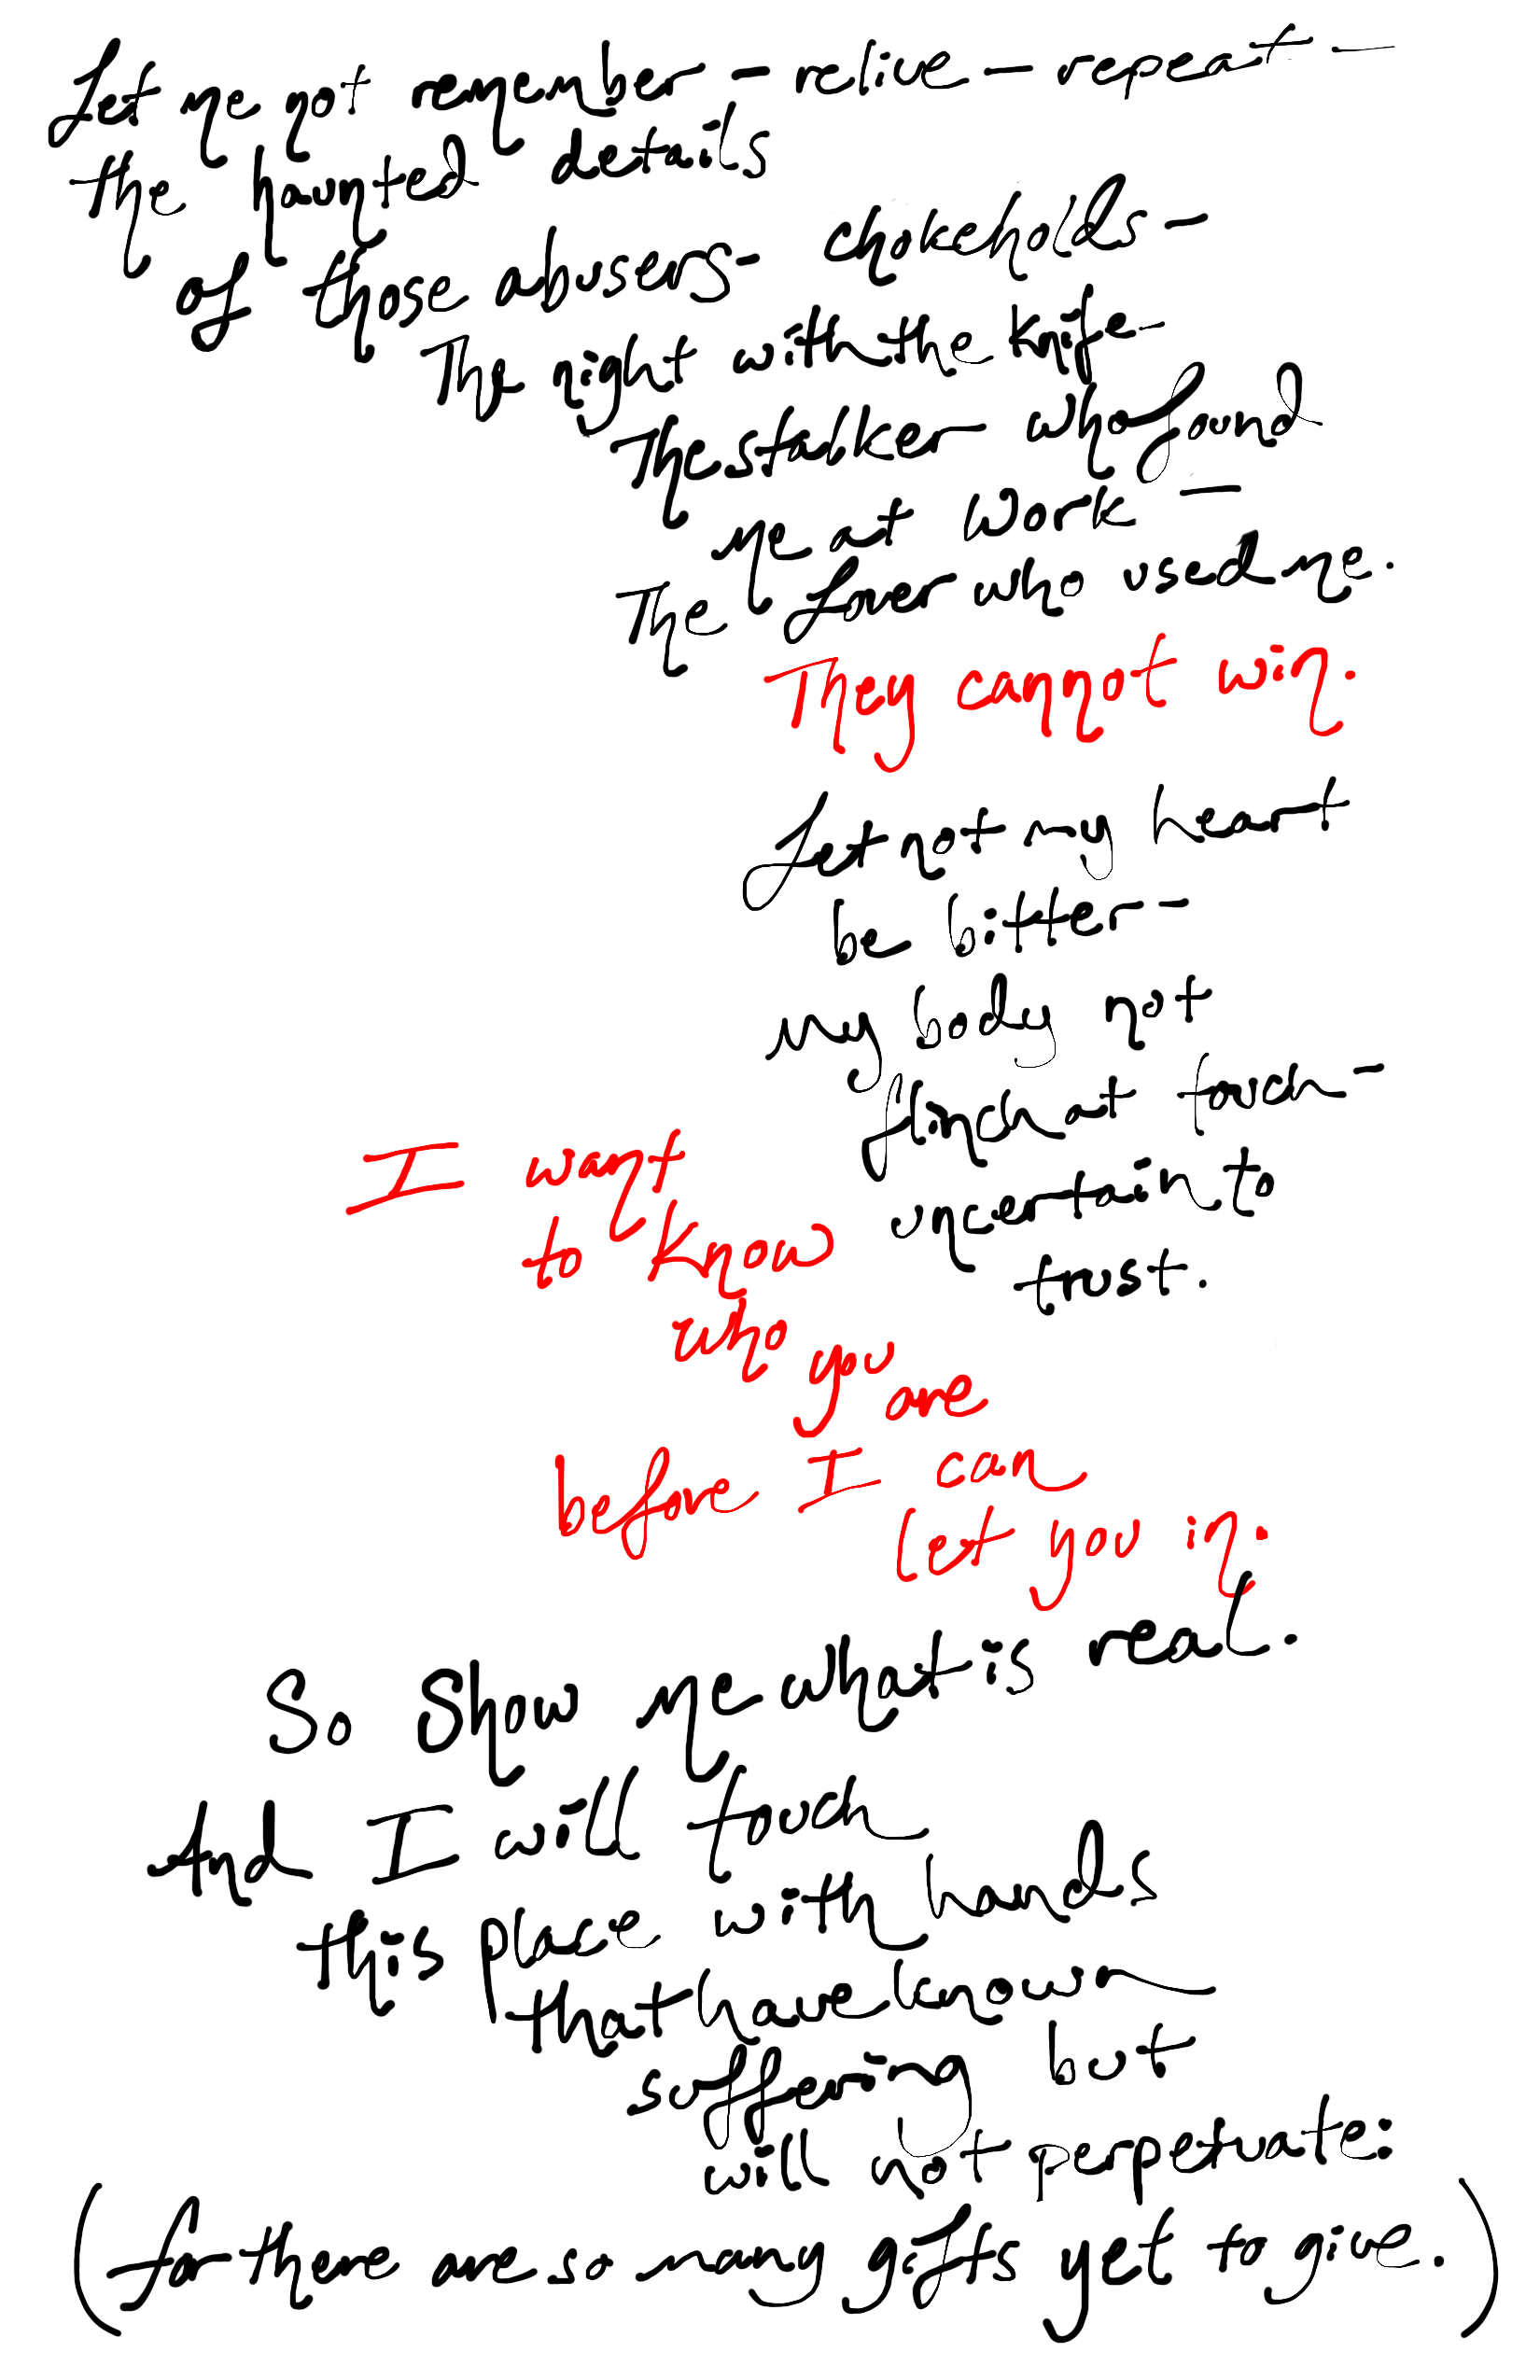 Let me not remember – relive – repeat –
the haunted details
of those abusers – chokeholds –
The night with the knife –
The stalker who found
me at work –
The lover who used me.
They cannot win.
Let not my heart
be bitter –
my body not
flinch at touch –
uncertain to
trust.
I want
to know
who you
are
before I can
let you in.
So show me what is real.
And I will touch
this place with hands
that have known
suffering but
will not perpetuate:
(for there are so many gifts yet to give.)